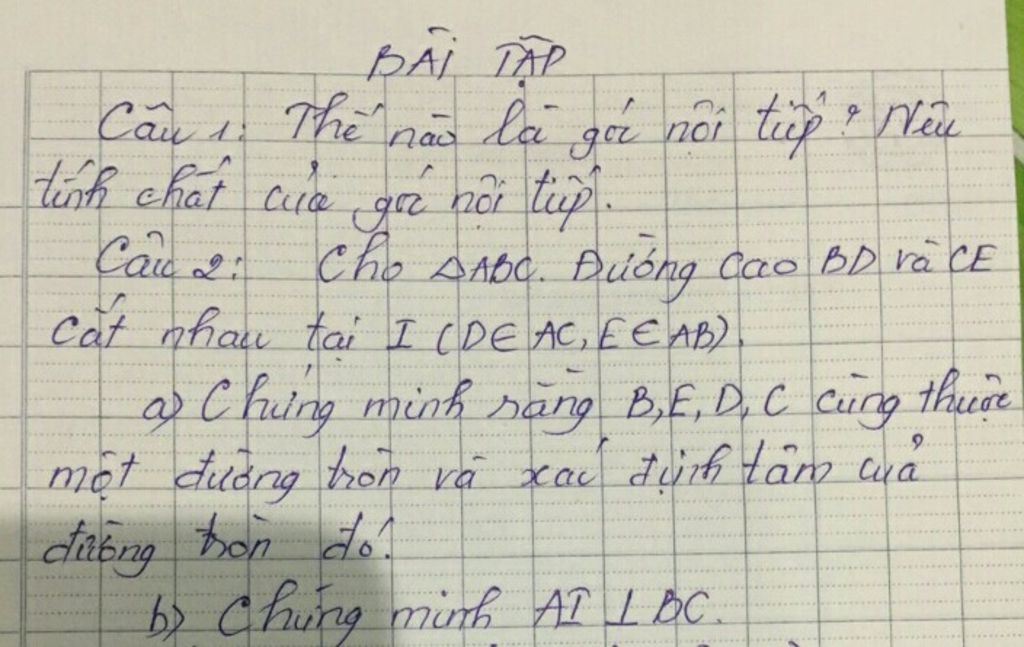 BÀI TẬP
Câu 1: Thế nào là góc nội tiếp? Nêu
tính chất của góc nội tiếp.
Câu 2: Cho △ABC. Đường cao BD và CE
cắt nhau tại I (D∈AC, E∈AB).
a) Chứng minh rằng B, E, D, C cùng thuộc
một đường tròn và xác định tâm của
đường tròn đó.
b) Chứng minh AI ⊥ BC.